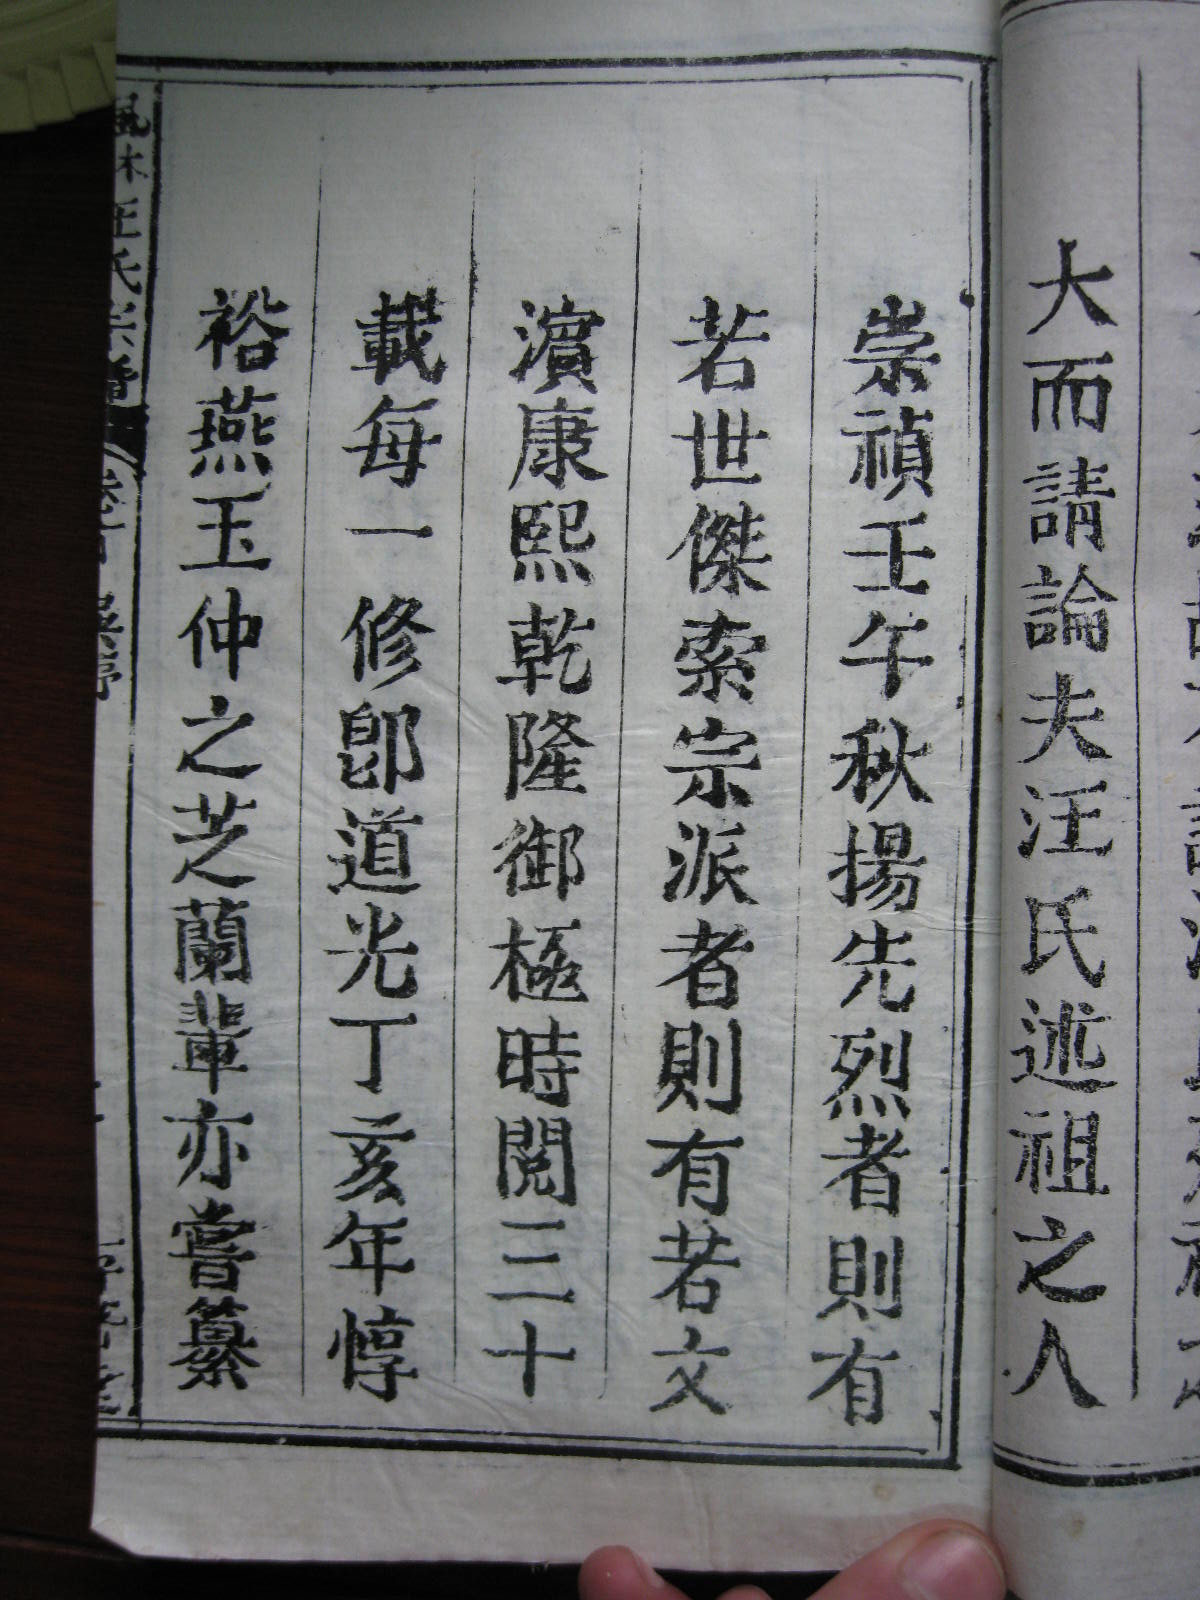 大而請論夫汪氏述祖之人
崇禎壬午秋揚先烈者則有
若世傑索宗派者則有若文
濵康熙乾隆御極時閱三十
載每一修卽道光丁亥年惇
裕燕玉仲之芝蘭輩亦嘗纂
風林汪氏宗譜